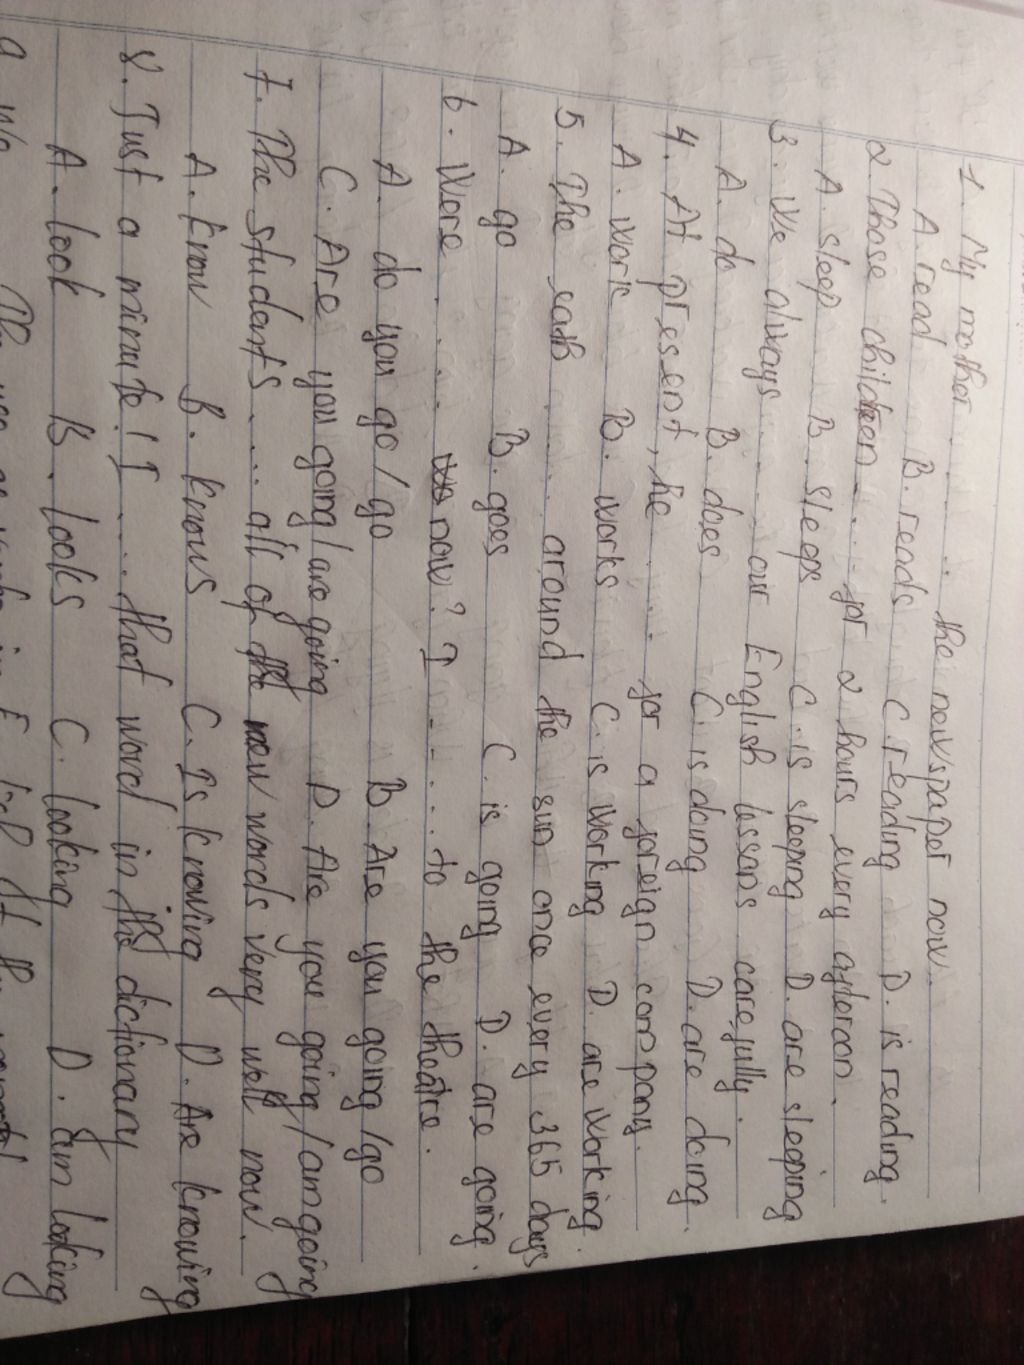 1. My mother ........ the newspaper now.
A. read B. reads C. reading D. is reading.
2. Those children .... for 2 hours every afteroon.
A. sleep B. sleeps C. is sleeping D. are sleeping
3. We always .... our English lessons carefully.
A. do B. does C. is doing D. are doing.
4. At present, he .... for a foreign company.
A. work B. works C. is working D. are working.
5. The eath .... around the sun once every 365 days
A. go B. goes C. is going D. are going.
6. Were ..... now? I ..... to the theatre.
A. do you go / go B. Are you going / go
C. Are you going / are going D. Are you going / am going
7. The students .... all of the new words very well now.
A. know B. knows C. Is knowing D. Are knowing
8. Just a minute! I .... that word in the dictionary
A. look B. looks C. looking D. am looking
9